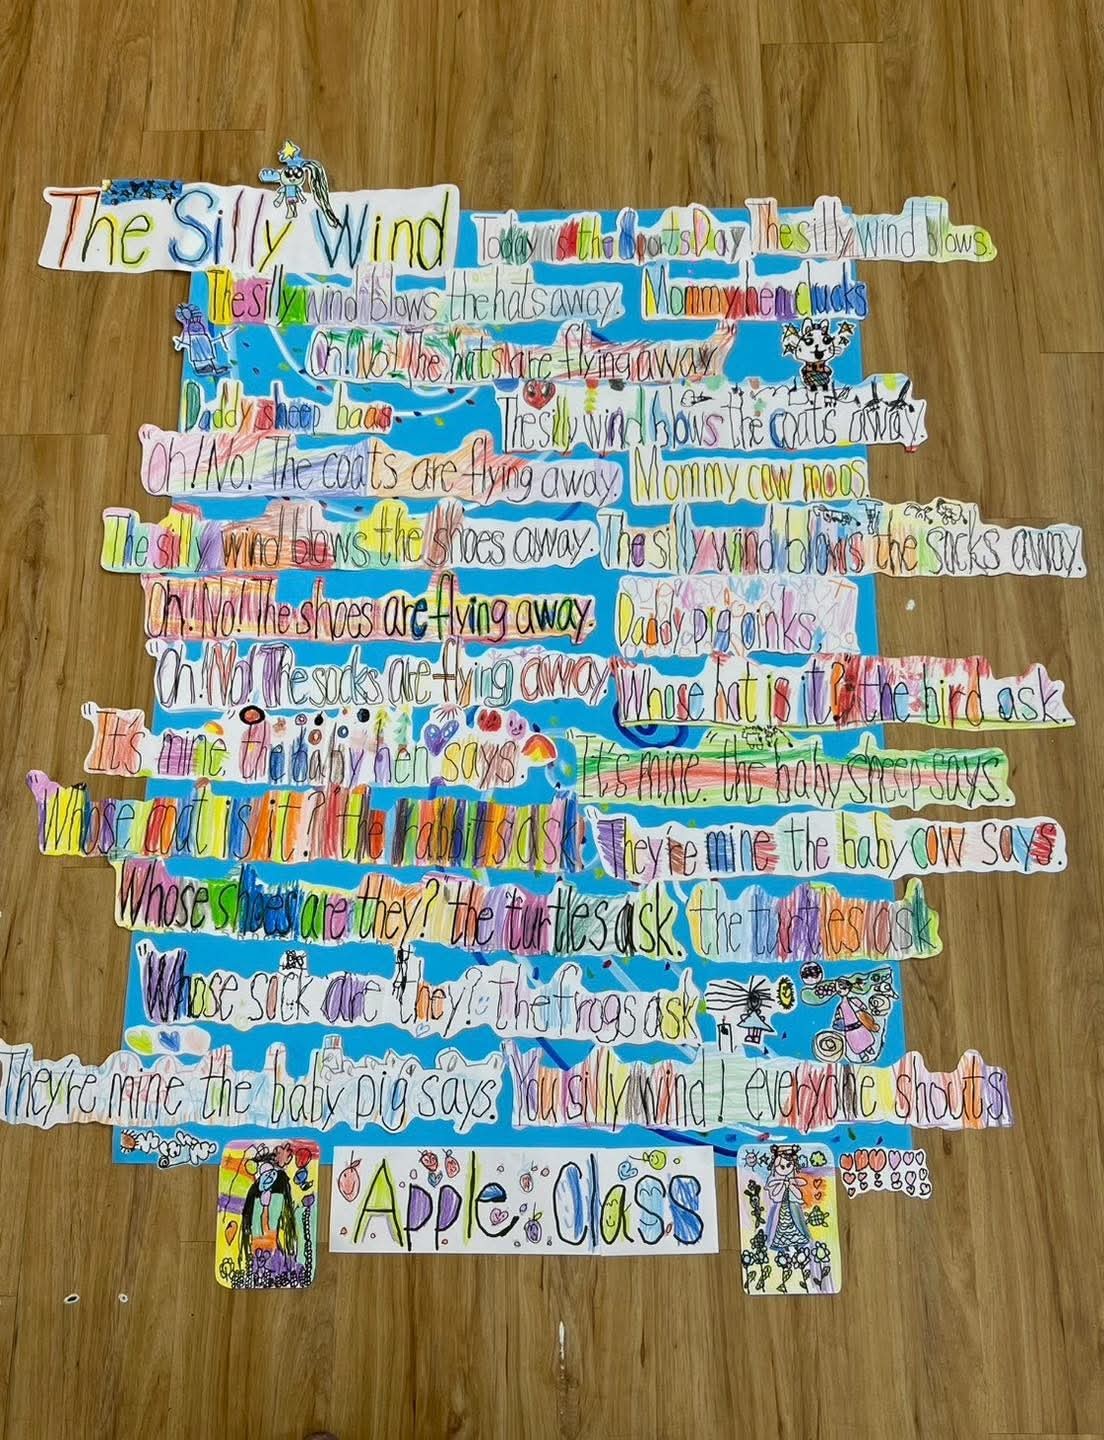 The Silly Wind
Today is the Sports Day The silly wind blows.
The silly wind blows the hats away. Mommy hen clucks
Oh! No! The hats are flying away.
Daddy sheep baas The silly wind blows the coats away.
"Oh! No! The coats are flying away. Mommy cow moos
The silly wind blows the shoes away. The silly wind blows the socks away.
Oh! No! The shoes are flying away. Daddy pig oinks,
"Oh! No! The socks are flying away. "Whose hat is it? the bird ask.
"It's mine, the baby hen says. "It's mine." the baby sheep says.
Whose coat is it? the rabbits ask They're mine the baby cow says.
Whose shoes are they? the turtles ask. the turtles ask
"Whose sock are they? The frogs ask
They're mine the baby pig says. You silly wind! everyone shouts
Apple Class